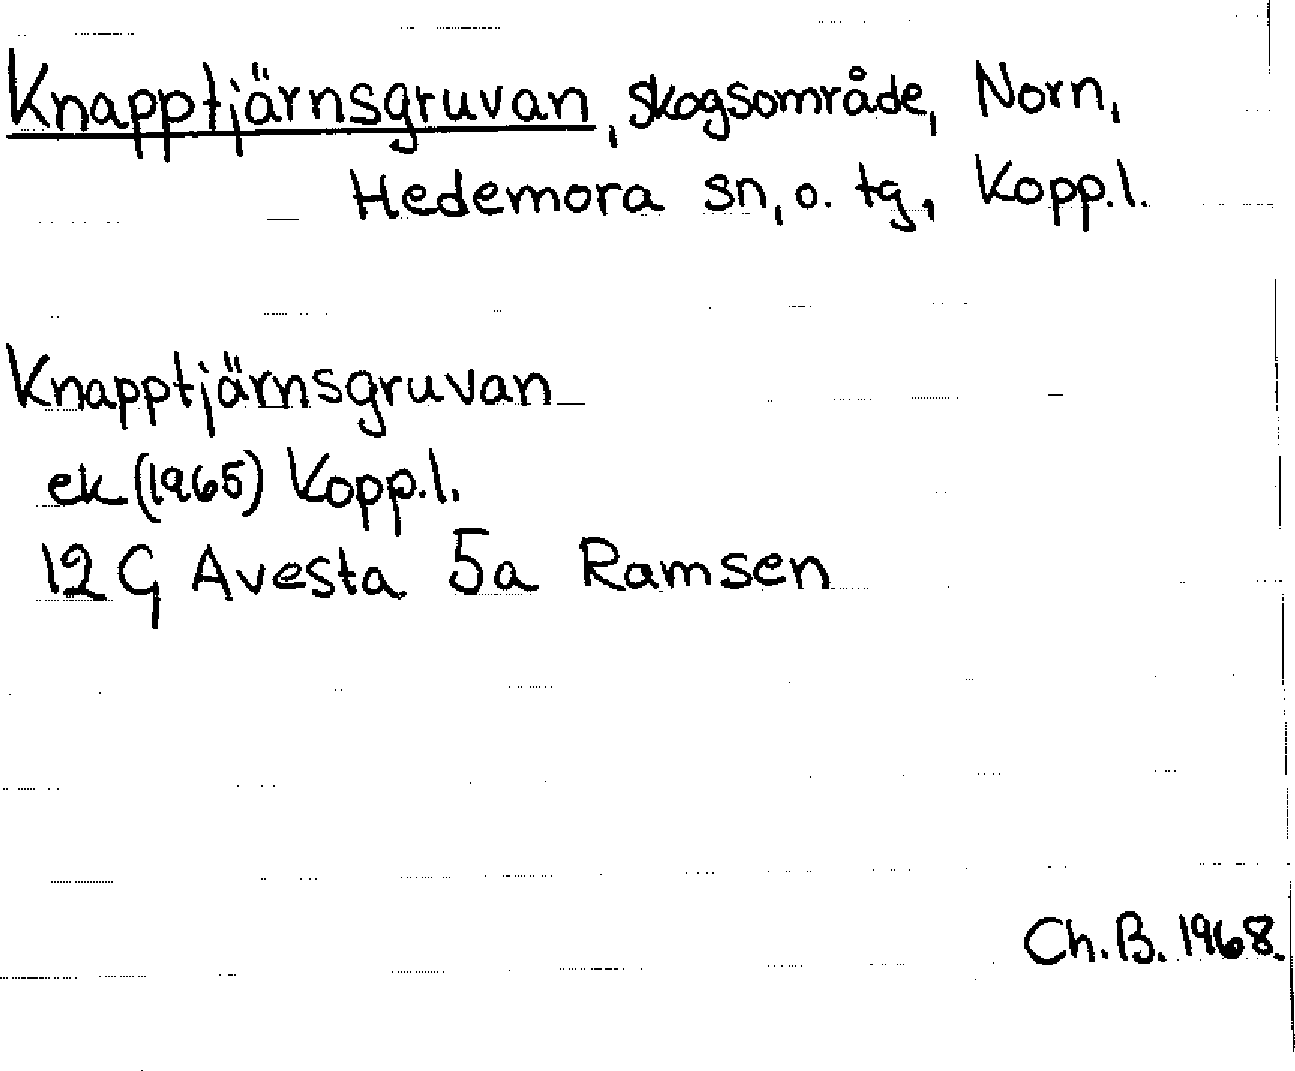 Knapptjärnsgruvan, skogsområde, Norn,
Hedemora sn, o. tg, Kopp.l.
Knapptjärnsgruvan
ek (1965) Kopp.l.
12 G Avesta 5a Ramsen
Ch.B. 1968.